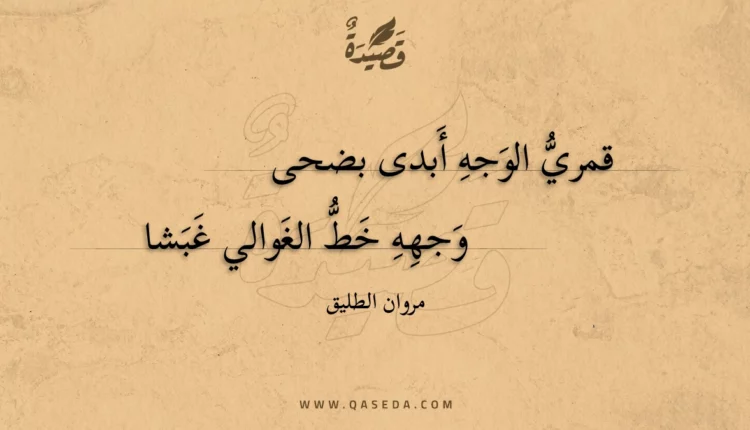 قَصِيدَةٌ
قمريُّ الوَجهِ أَبدى بضحى
وَجهِهِ خَطُّ الغَوالي غَبَشا
مروان الطليق
WWW.QASEDA.COM